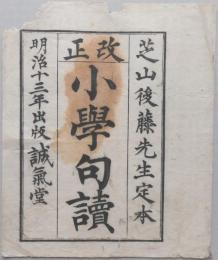 改正
芝山後藤先生定本
小學句讀
明治十三年出版 誠氣堂